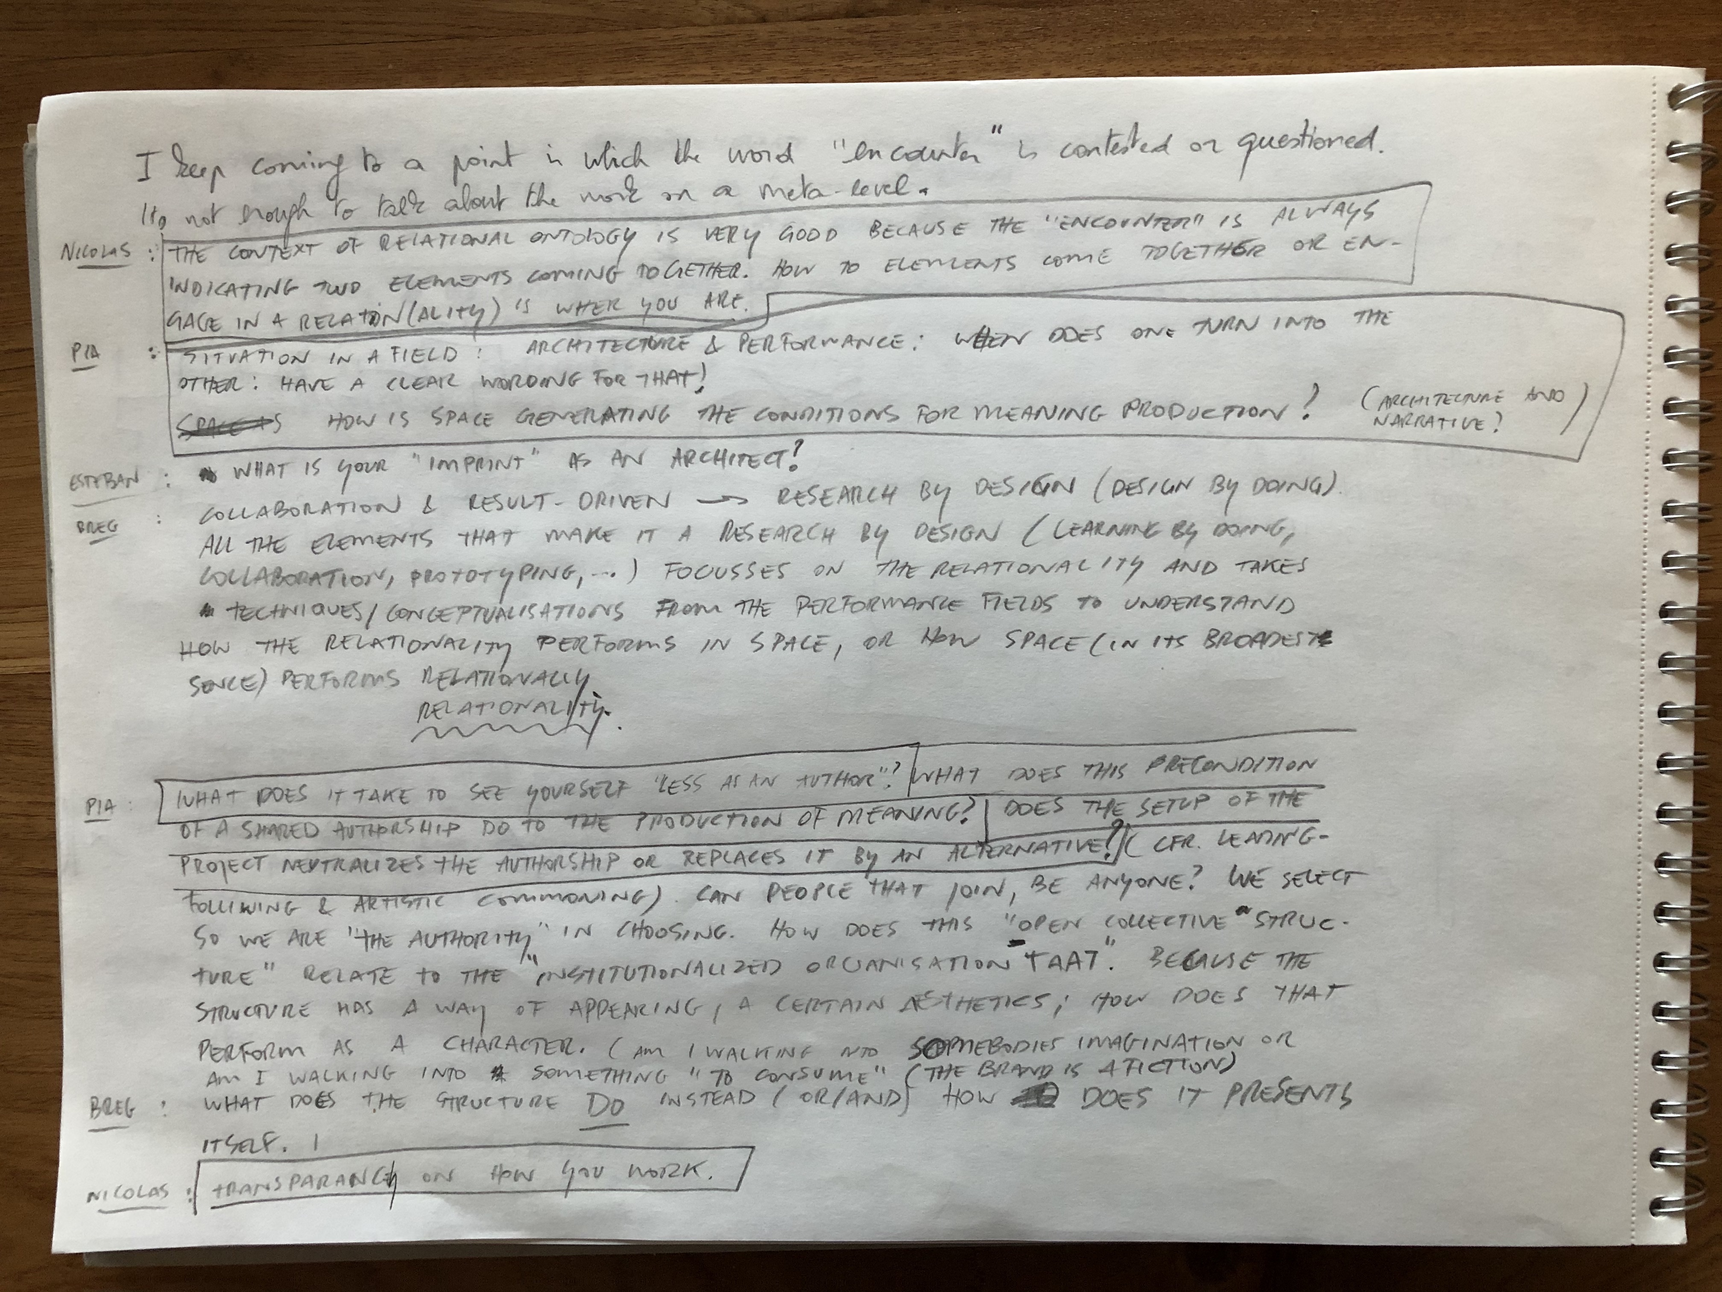 I keep coming to a point in which the word "encounter" is contested or questioned.
It's not enough to talk about the work on a meta-level.
NICOLAS : THE CONTEXT OF RELATIONAL ONTOLOGY IS VERY GOOD BECAUSE THE "ENCOUNTER" IS ALWAYS
INDICATING TWO ELEMENTS COMING TOGETHER. HOW TO ELEMENTS COME TOGETHER OR EN-
GAGE IN A RELATION(ALITY) IS WHER YOU ARE.
PIA : SITUATION IN A FIELD : ARCHITECTURE & PERFORMANCE : WHEN DOES ONE TURN INTO THE
OTHER : HAVE A CLEAR WORDING FOR THAT!
HOW IS SPACE GENERATING THE CONDITIONS FOR MEANING PRODUCTION ? (ARCHITECTURE AND
NARRATIVE?)
ESTEBAN : WHAT IS YOUR "IMPRINT" AS AN ARCHITECT?
BREG : COLLABORATION & RESULT-DRIVEN → RESEARCH BY DESIGN (DESIGN BY DOING).
ALL THE ELEMENTS THAT MAKE IT A RESEARCH BY DESIGN (LEARNING BY DOING,
COLLABORATION, PROTOTYPING, ...) FOCUSSES ON THE RELATIONALITY AND TAKES
TECHNIQUES/CONCEPTUALISATIONS FROM THE PERFORMANCE FIELDS TO UNDERSTAND
HOW THE RELATIONALITY PERFORMS IN SPACE, OR HOW SPACE (IN ITS BROADEST
SENCE) PERFORMS RELATIONALLY
RELATIONALITY.
PIA : WHAT DOES IT TAKE TO SEE YOURSELF "LESS AS AN AUTHOR"? WHAT DOES THIS PRECONDITION
OF A SHARED AUTHORSHIP DO TO THE PRODUCTION OF MEANING? DOES THE SETUP OF THE
PROJECT NEUTRALIZES THE AUTHORSHIP OR REPLACES IT BY AN ALTERNATIVE? (CFR. LEADING-
FOLLOWING & ARTISTIC COMMONING). CAN PEOPLE THAT JOIN, BE ANYONE? WE SELECT
SO WE ARE "THE AUTHORITY" IN CHOOSING. HOW DOES THIS "OPEN COLLECTIVE STRUC-
TURE" RELATE TO THE "INSTITUTIONALIZED ORGANISATION "TAAT". BECAUSE THE
STRUCTURE HAS A WAY OF APPEARING, A CERTAIN AESTHETICS, HOW DOES THAT
PERFORM AS A CHARACTER. (AM I WALKING INTO SOMEBODIES IMAGINATION OR
AM I WALKING INTO SOMETHING "TO CONSUME" (THE BRAND IS A FICTION)
BREG : WHAT DOES THE STRUCTURE DO INSTEAD (OR/AND) HOW DOES IT PRESENTS
ITSELF. !
NICOLAS : TRANSPARANCY ON HOW YOU WORK.